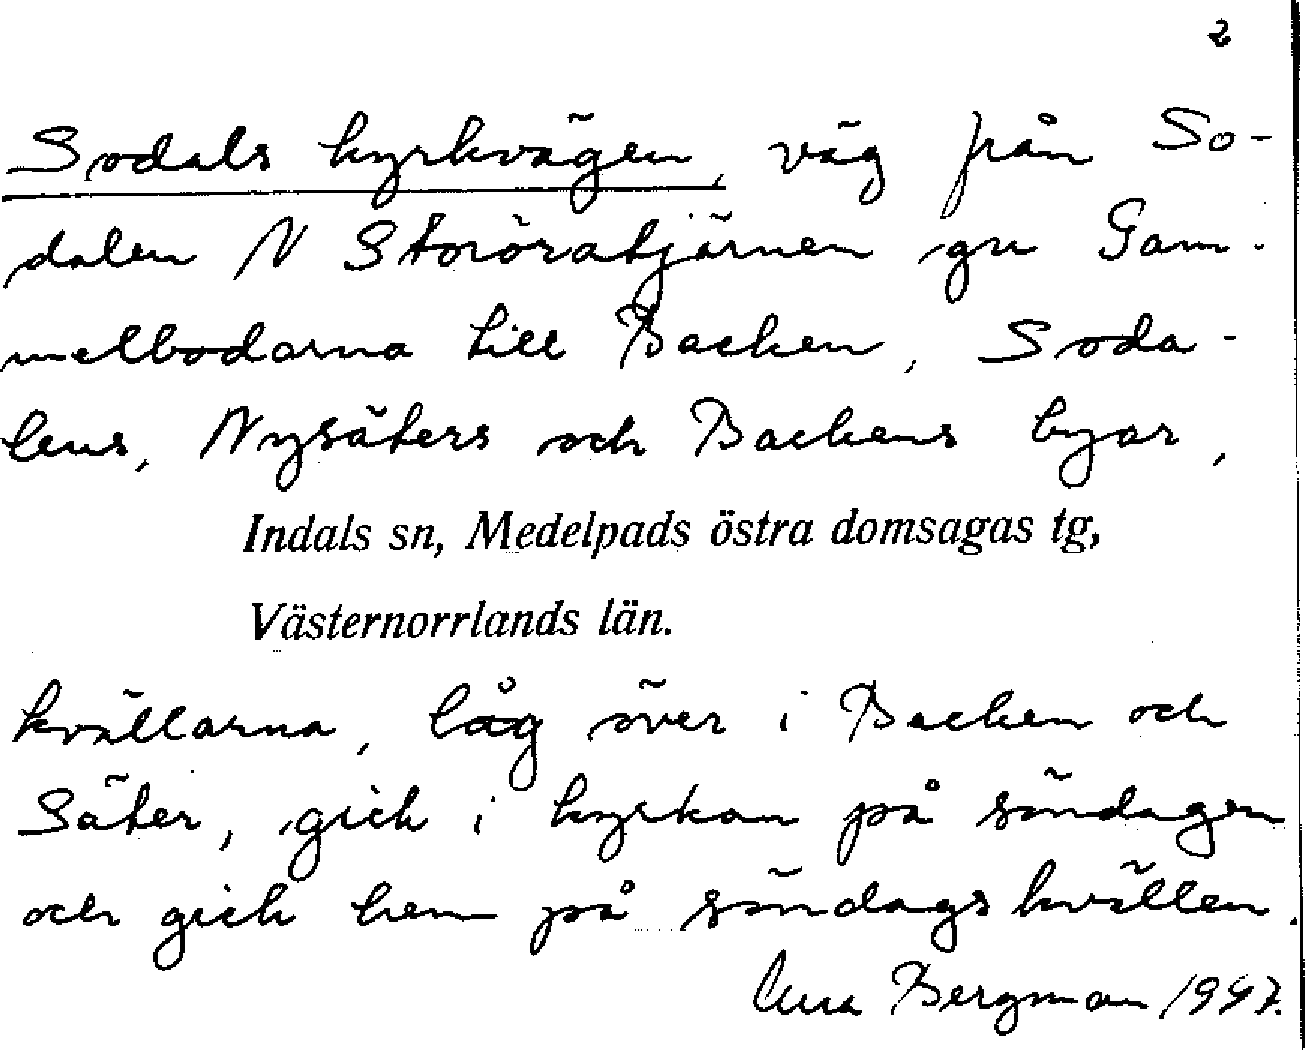 2
Sodals kyrkvägen, väg från So-
dalen N Storöratjärnen gm Gam-
melbodarna till Backen, Soda-
lens, Nysäters och Backens byar,
Indals sn, Medelpads östra domsagas tg,
Västernorrlands län.
kvällarna, låg över i Backen och
Säter, gick i kyrkan på söndagen
och gick hem på söndagskvällen.
Bergman